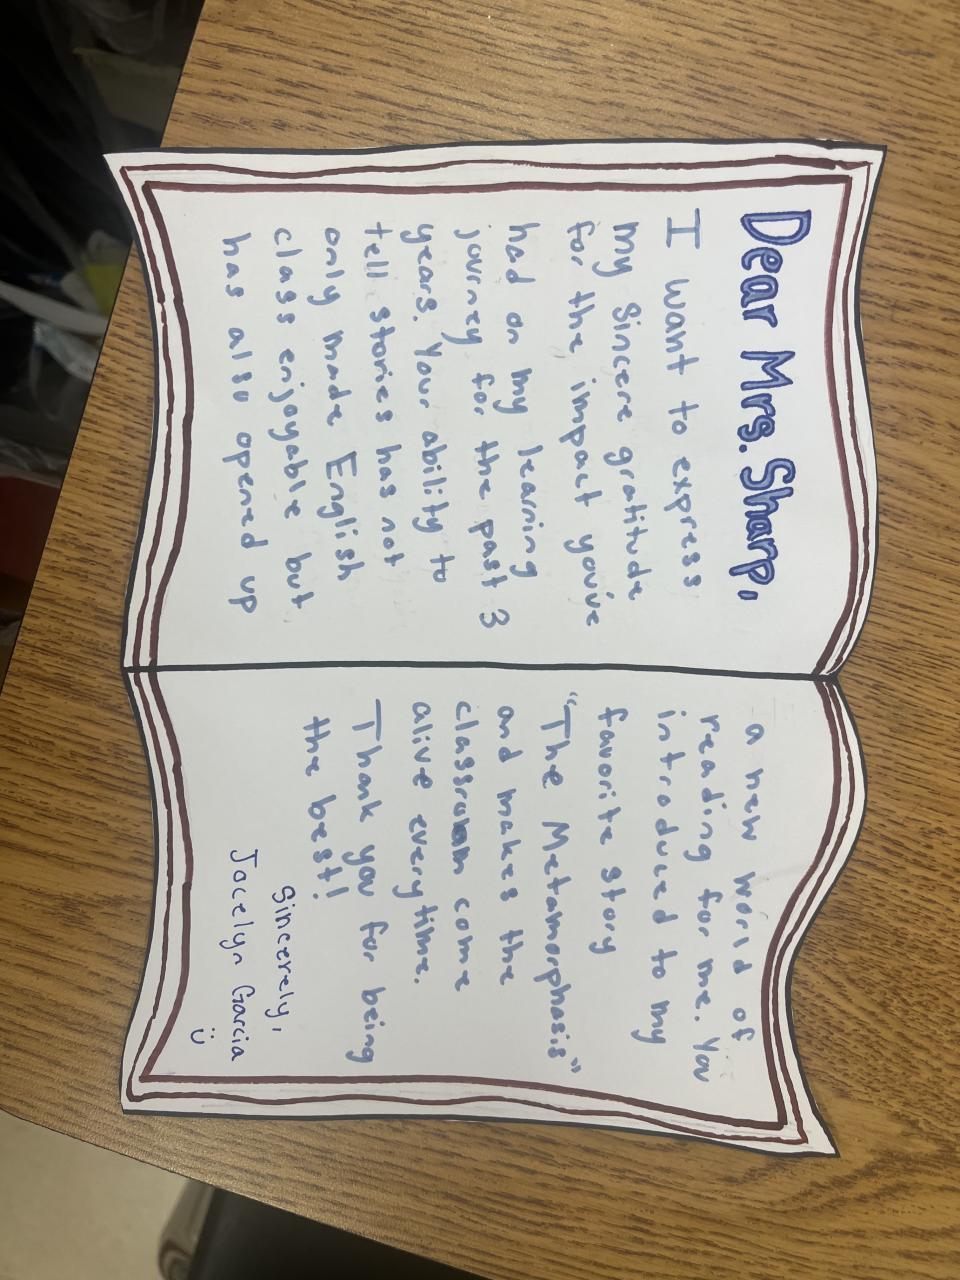 Dear Mrs. Sharp,
I want to express
my sincere gratitude
for the impact you've
had on my learning
journey for the past 3
years. Your ability to
tell stories has not
only made English
class enjoyable but
has also opened up
a new world of
reading for me. You
introduced to my
favorite story
"The Metamorphosis"
and makes the
classroom come
alive everytime.
Thank you for being
the best!
Sincerely,
Jocelyn Garcia